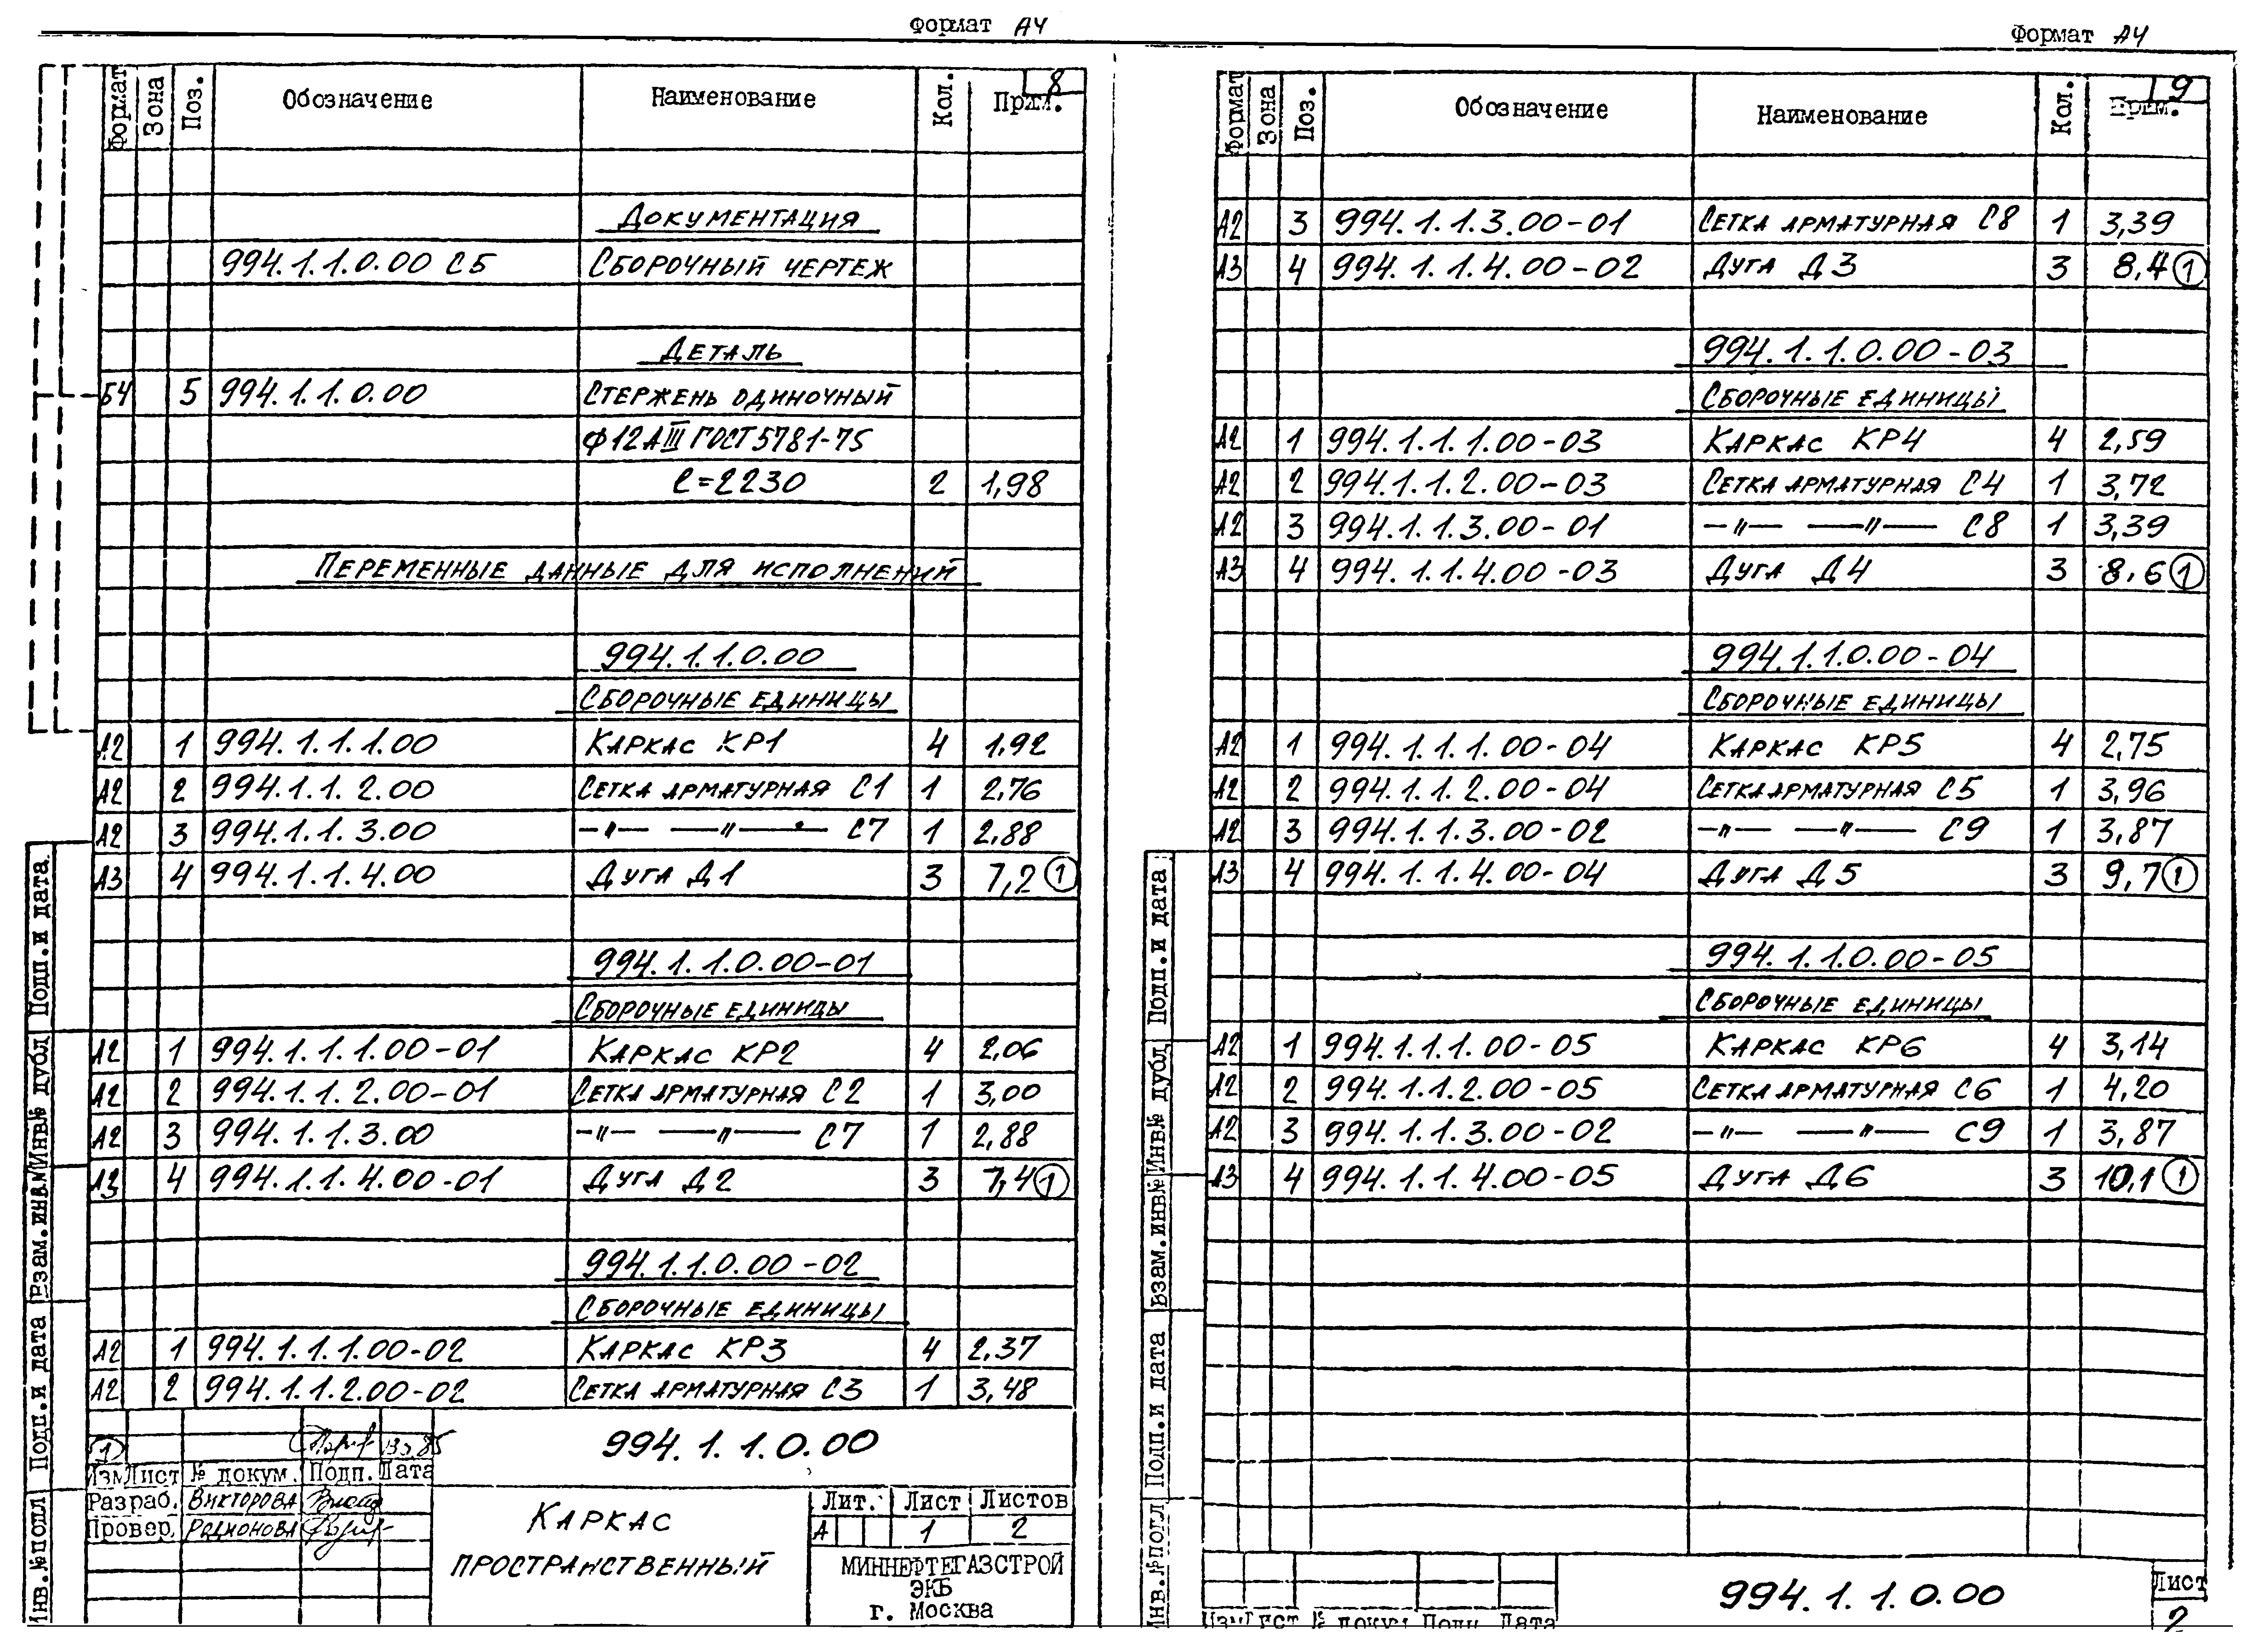 Формат А4
8
Формат Зона Поз. Обозначение Наименование Кол. Прим.
Документация
994.1.1.0.00 СБ Сборочный чертеж
Деталь
БЧ 5 994.1.1.0.00 Стержень одиночный
Ф12АIII ГОСТ 5781-75
ℓ=2230 2 1,98
Переменные данные для исполнений
994.1.1.0.00
Сборочные единицы
А2 1 994.1.1.1.00 Каркас КР1 4 1,92
А2 2 994.1.1.2.00 Сетка арматурная С1 1 2,76
А2 3 994.1.1.3.00 —"— —"— С7 1 2,88
А3 4 994.1.1.4.00 Дуга Д1 3 7,2 ①
994.1.1.0.00-01
Сборочные единицы
А2 1 994.1.1.1.00-01 Каркас КР2 4 2,06
А2 2 994.1.1.2.00-01 Сетка арматурная С2 1 3,00
А2 3 994.1.1.3.00 —"— —"— С7 1 2,88
А3 4 994.1.1.4.00-01 Дуга Д2 3 7,4 ①
994.1.1.0.00-02
Сборочные единицы
А2 1 994.1.1.1.00-02 Каркас КР3 4 2,37
А2 2 994.1.1.2.00-02 Сетка арматурная С3 1 3,48
① 85
994.1.1.0.00
Изм Лист № докум. Подп. Дата
Разраб. Викторова
Провер. Родионова
Каркас
пространственный
Лит. Лист Листов
А 1 2
МИННЕФТЕГАЗСТРОЙ
ЭКБ
г. Москва
Инв.№ подл Подп.и дата Взам.инв.№ Инв№ дубл Подп.и дата
Формат А4
9
Формат Зона Поз. Обозначение Наименование Кол. Прим.
А2 3 994.1.1.3.00-01 Сетка арматурная С8 1 3,39
А3 4 994.1.1.4.00-02 Дуга Д3 3 8,4 ①
994.1.1.0.00-03
Сборочные единицы
А2 1 994.1.1.1.00-03 Каркас КР4 4 2,59
А2 2 994.1.1.2.00-03 Сетка арматурная С4 1 3,72
А2 3 994.1.1.3.00-01 —"— —"— С8 1 3,39
А3 4 994.1.1.4.00-03 Дуга Д4 3 8,6 ①
994.1.1.0.00-04
Сборочные единицы
А2 1 994.1.1.1.00-04 Каркас КР5 4 2,75
А2 2 994.1.1.2.00-04 Сетка арматурная С5 1 3,96
А2 3 994.1.1.3.00-02 —"— —"— С9 1 3,87
А3 4 994.1.1.4.00-04 Дуга Д5 3 9,7 ①
994.1.1.0.00-05
Сборочные единицы
А2 1 994.1.1.1.00-05 Каркас КР6 4 3,14
А2 2 994.1.1.2.00-05 Сетка арматурная С6 1 4,20
А2 3 994.1.1.3.00-02 —"— —"— С9 1 3,87
А3 4 994.1.1.4.00-05 Дуга Д6 3 10,1 ①
994.1.1.0.00
Лист
2
Изм Лист № докум Подп Дата
Инв.№ подл Подп.и дата Взам.инв№ Инв№ дубл Подп.и дата